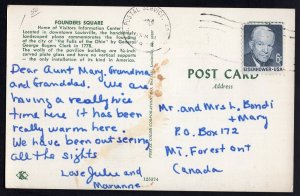 FOUNDERS SQUARE
Home of Visitors Information Center
Located in downtown Louisville, the handsomely
landscaped square commemorates the founding
of the city at "the Falls of the Ohio" by General
George Rogers Clark in 1778.
The walls of the pavilion building are ¾-inch
curved plate glass and have no vertical supports
the only installation of its kind in America.
EISENHOWER·USA
6¢
POST CARD
Address
Dear Aunt Mary, Grandma
and Granddad. We are
having a really nice
time here. It has been
really warm here.
We have been out seeing
all the sights
Love Julie and
Marianne
Mr. and Mrs L. Bondi
+ Mary
P.O. Box 172
Mt. Forest Ont
Canada
125074